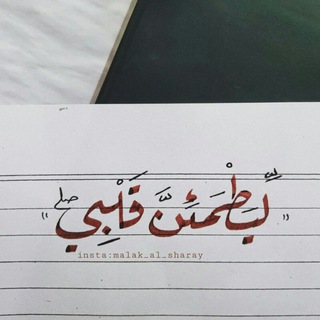 "لِّيَطْمَئِنَّ قَلْبِي ۖ"
insta:malak_al_sharay